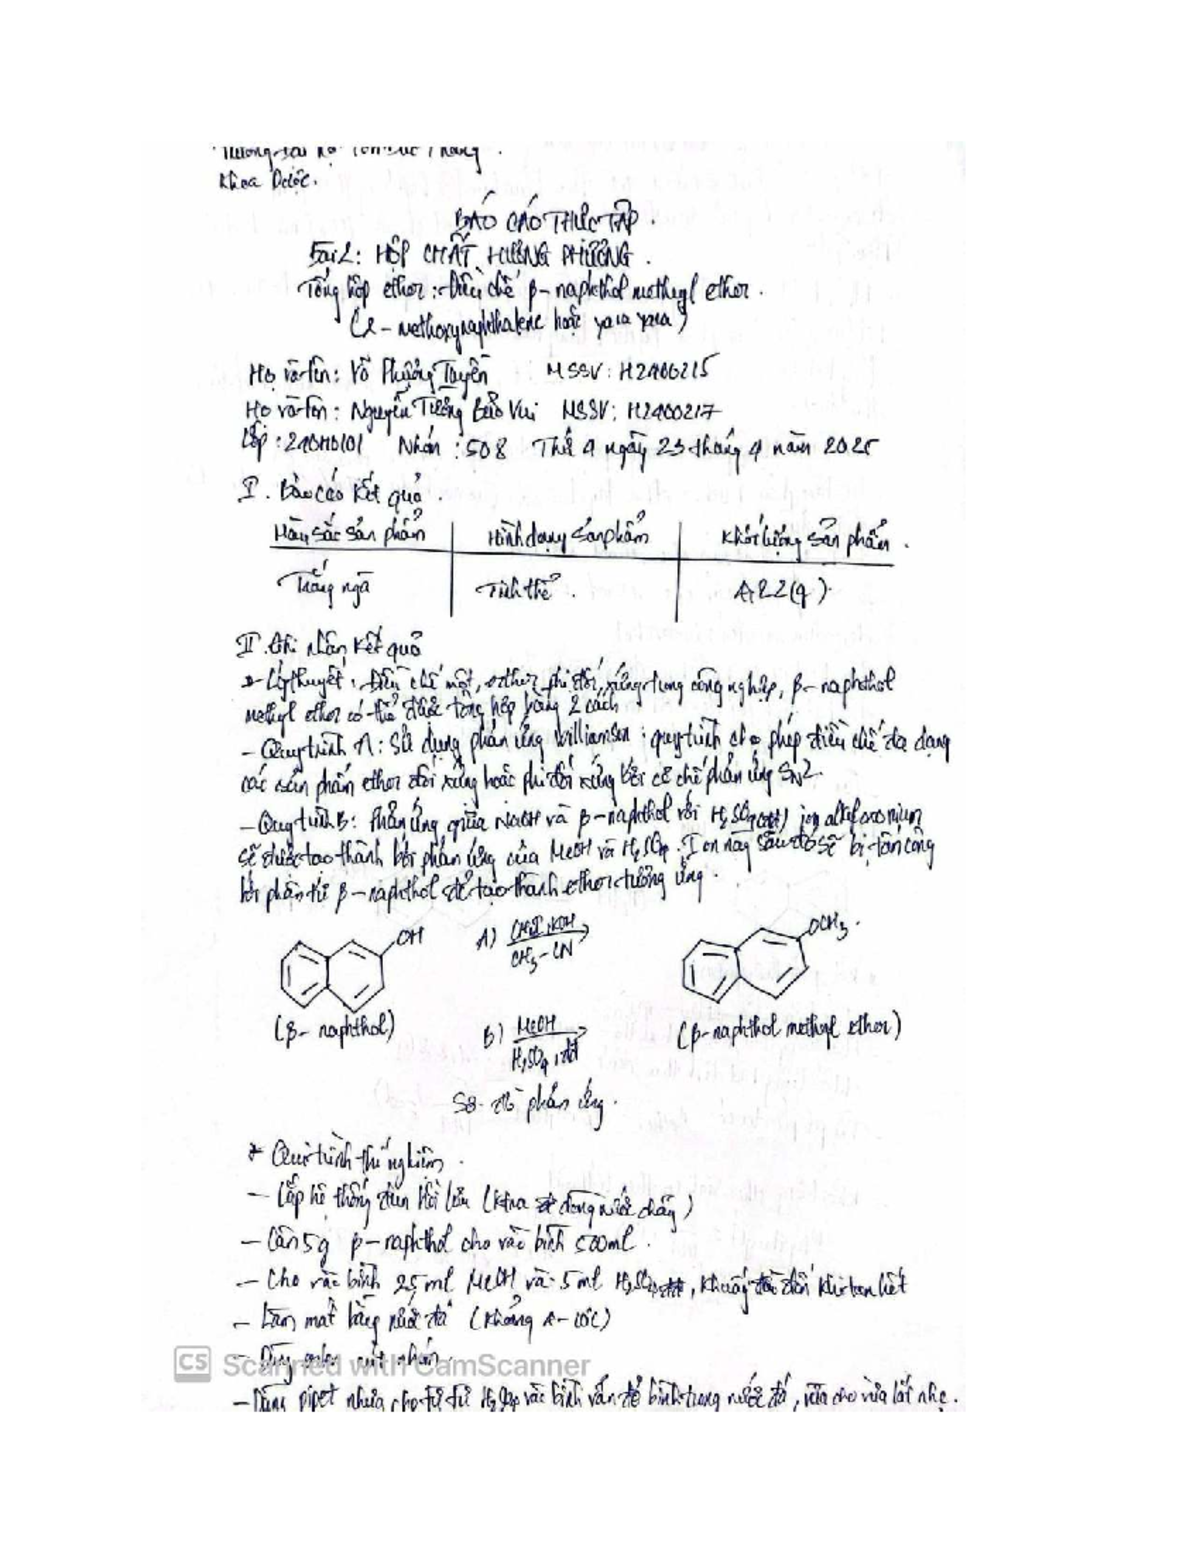 Khoa Dược.
BÁO CÁO THỰC TẬP.
Bài 2: HỢP CHẤT HƯƠNG PHƯƠNG.
Tổng hợp ether: Điều chế β-naphthol methyl ether.
(2-methoxynaphthalene hoặc yara yara)
Họ và tên: Võ Phượng Tuyền MSSV: H2400215
Họ và tên: Nguyễn Tường Bảo Vui MSSV: H2400217
Lớp: Nhóm: 508 Thứ 4 ngày 23 tháng 4 năm 2025
I. Báo cáo kết quả.
Màu sắc sản phẩm Hình dạng sản phẩm Khối lượng sản phẩm.
Trắng ngà Tinh thể.
II. Ghi nhận kết quả
Lý thuyết: Điều chế một ether phi đối xứng trong công nghiệp, β-naphthol
methyl ether có thể được tổng hợp bằng 2 cách
- Quy trình A: Sử dụng phản ứng Williamson; quy trình cho phép điều chế đa dạng
các sản phẩm ether đối xứng hoặc phi đối xứng bởi cơ chế phản ứng SN2.
- Quy trình B: Phản ứng giữa và β-naphthol với H2SO4 ion alkyloxonium
sẽ được tạo thành bởi phản ứng của MeOH và H2SO4. Ion này sau đó sẽ bị tấn công
bởi phân tử β-naphthol để tạo thành ether tương ứng.
OH A) CH3I, KOH OCH3.
CH3-CN
(β-naphthol) B) MeOH (β-naphthol methyl ether)
H2SO4, đđ
Sơ đồ phản ứng.
* Quy trình thí nghiệm.
- Lắp hệ thống đun hồi lưu (ktra dòng nước chảy)
- Cân 5g β-naphthol cho vào bình 500ml.
- Cho vào bình 25ml MeOH và 5ml H2SO4, khuấy đến khi tan hết
- Làm mát bằng nước đá (khoảng
CS Scanned with CamScanner
- Dùng pipet nhựa cho từ từ vào bình vẫn để bình trong nước đá, vừa cho vừa lắc nhẹ.